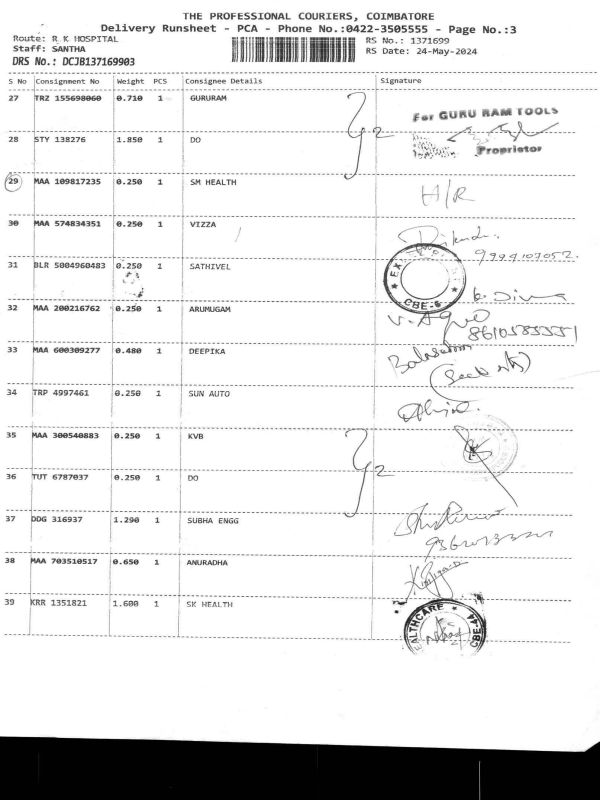 THE PROFESSIONAL COURIERS, COIMBATORE
Delivery Runsheet - PCA - Phone No.:0422-3505555 - Page No.:3
Route: R K HOSPITAL RS No.: 1371699
Staff: SANTHA RS Date: 24-May-2024
DRS No.: DCJB137169903
S No Consignment No Weight PCS Consignee Details Signature
27 TRZ 155698060 0.710 1 GURURAM For GURU RAM TOOLS
28 STY 138276 1.850 1 DO Proprietor
29 MAA 109817235 0.250 1 SM HEALTH H/R
30 MAA 574834351 0.250 1 VIZZA
31 BLR 5004960483 0.250 1 SATHIVEL CBE-6
32 MAA 200216762 0.250 1 ARUMUGAM
33 MAA 600309277 0.480 1 DEEPIKA
34 TRP 4997461 0.250 1 SUN AUTO
35 MAA 300540883 0.250 1 KVB
36 TUT 6787037 0.250 1 DO
37 DDG 316937 1.290 1 SUBHA ENGG
38 MAA 703510517 0.650 1 ANURADHA
39 KRR 1351821 1.600 1 SK HEALTH CBE-44